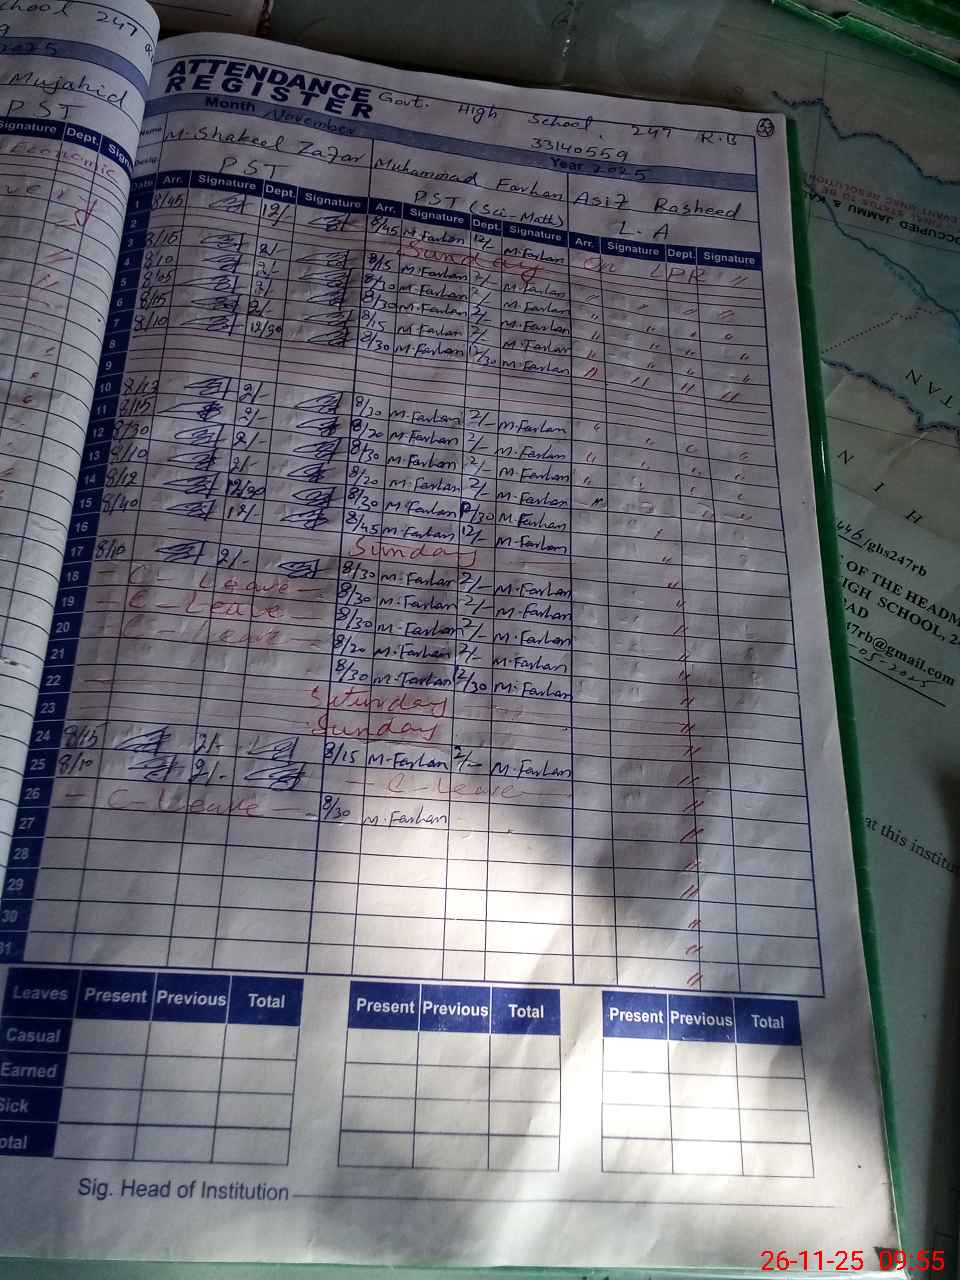 chool 247
2025
Mujahid
PST
Signature Dept. Sign
Economic
ATTENDANCE
REGISTER
Govt. High School, 247 R.B
33140559
Month November Year 2025
Name M. Shakeel Zafar Muhammad Farhan Asif Rasheed
Desig. PST PST (Sci-Math) L.A
Date Arr. Signature Dept. Signature Arr. Signature Dept. Signature Arr. Signature Dept. Signature
1 8/45 12/- 8/45 M.Farhan 12/- M.Farhan On LPR "
2 Sunday
3 8/15 2/- 8/5 M.Farhan 2/- M.Farhan
4 8/10 2/- 8/30 M.Farhan 2/- M.Farhan
5 8/05 2/- 8/30 M.Farhan 2/- M.Farhan
6 8/15 2/- 8/15 M.Farhan 2/- M.Farhan
7 8/10 12/30 8/30 M.Farhan 12/30 M.Farhan
8
9
10 2/- 8/30 M.Farhan 2/- M.Farhan
11 8/15 2/- 8/20 M.Farhan 2/- M.Farhan
12 8/30 2/- 8/30 M.Farhan 2/- M.Farhan
13 8/10 2/- 8/20 M.Farhan 2/- M.Farhan
14 8/12 12/30 8/30 M.Farhan 12/30 M.Farhan
15 8/40 12/- 8/45 M.Farhan 12/- M.Farhan
16 Sunday
17 8/10 2/- 8/30 M.Farhan 2/- M.Farhan
18 - C - Leave - 8/30 M.Farhan 2/- M.Farhan
19 - C - Leave - 8/30 M.Farhan 2/- M.Farhan
20 - C - Leave - 8/20 M.Farhan 2/- M.Farhan
21 8/30 M.Farhan 12/30 M.Farhan
22 Saturday
23 Sunday
24 8/15 2/- 8/15 M.Farhan 2/- M.Farhan
25 8/10 2/- - C-Leave
26 - C-Leave - 8/30 M.Farhan
27
28
29
30
31
Leaves Present Previous Total Present Previous Total Present Previous Total
Casual
Earned
Sick
Total
Sig. Head of Institution
446/ghs247rb
OF THE HEADM
IGH SCHOOL, 2
AD
47rb@gmail.com
-05-2025
at this institu
OCCUPIED JAMMU & KA
26-11-25 09:55